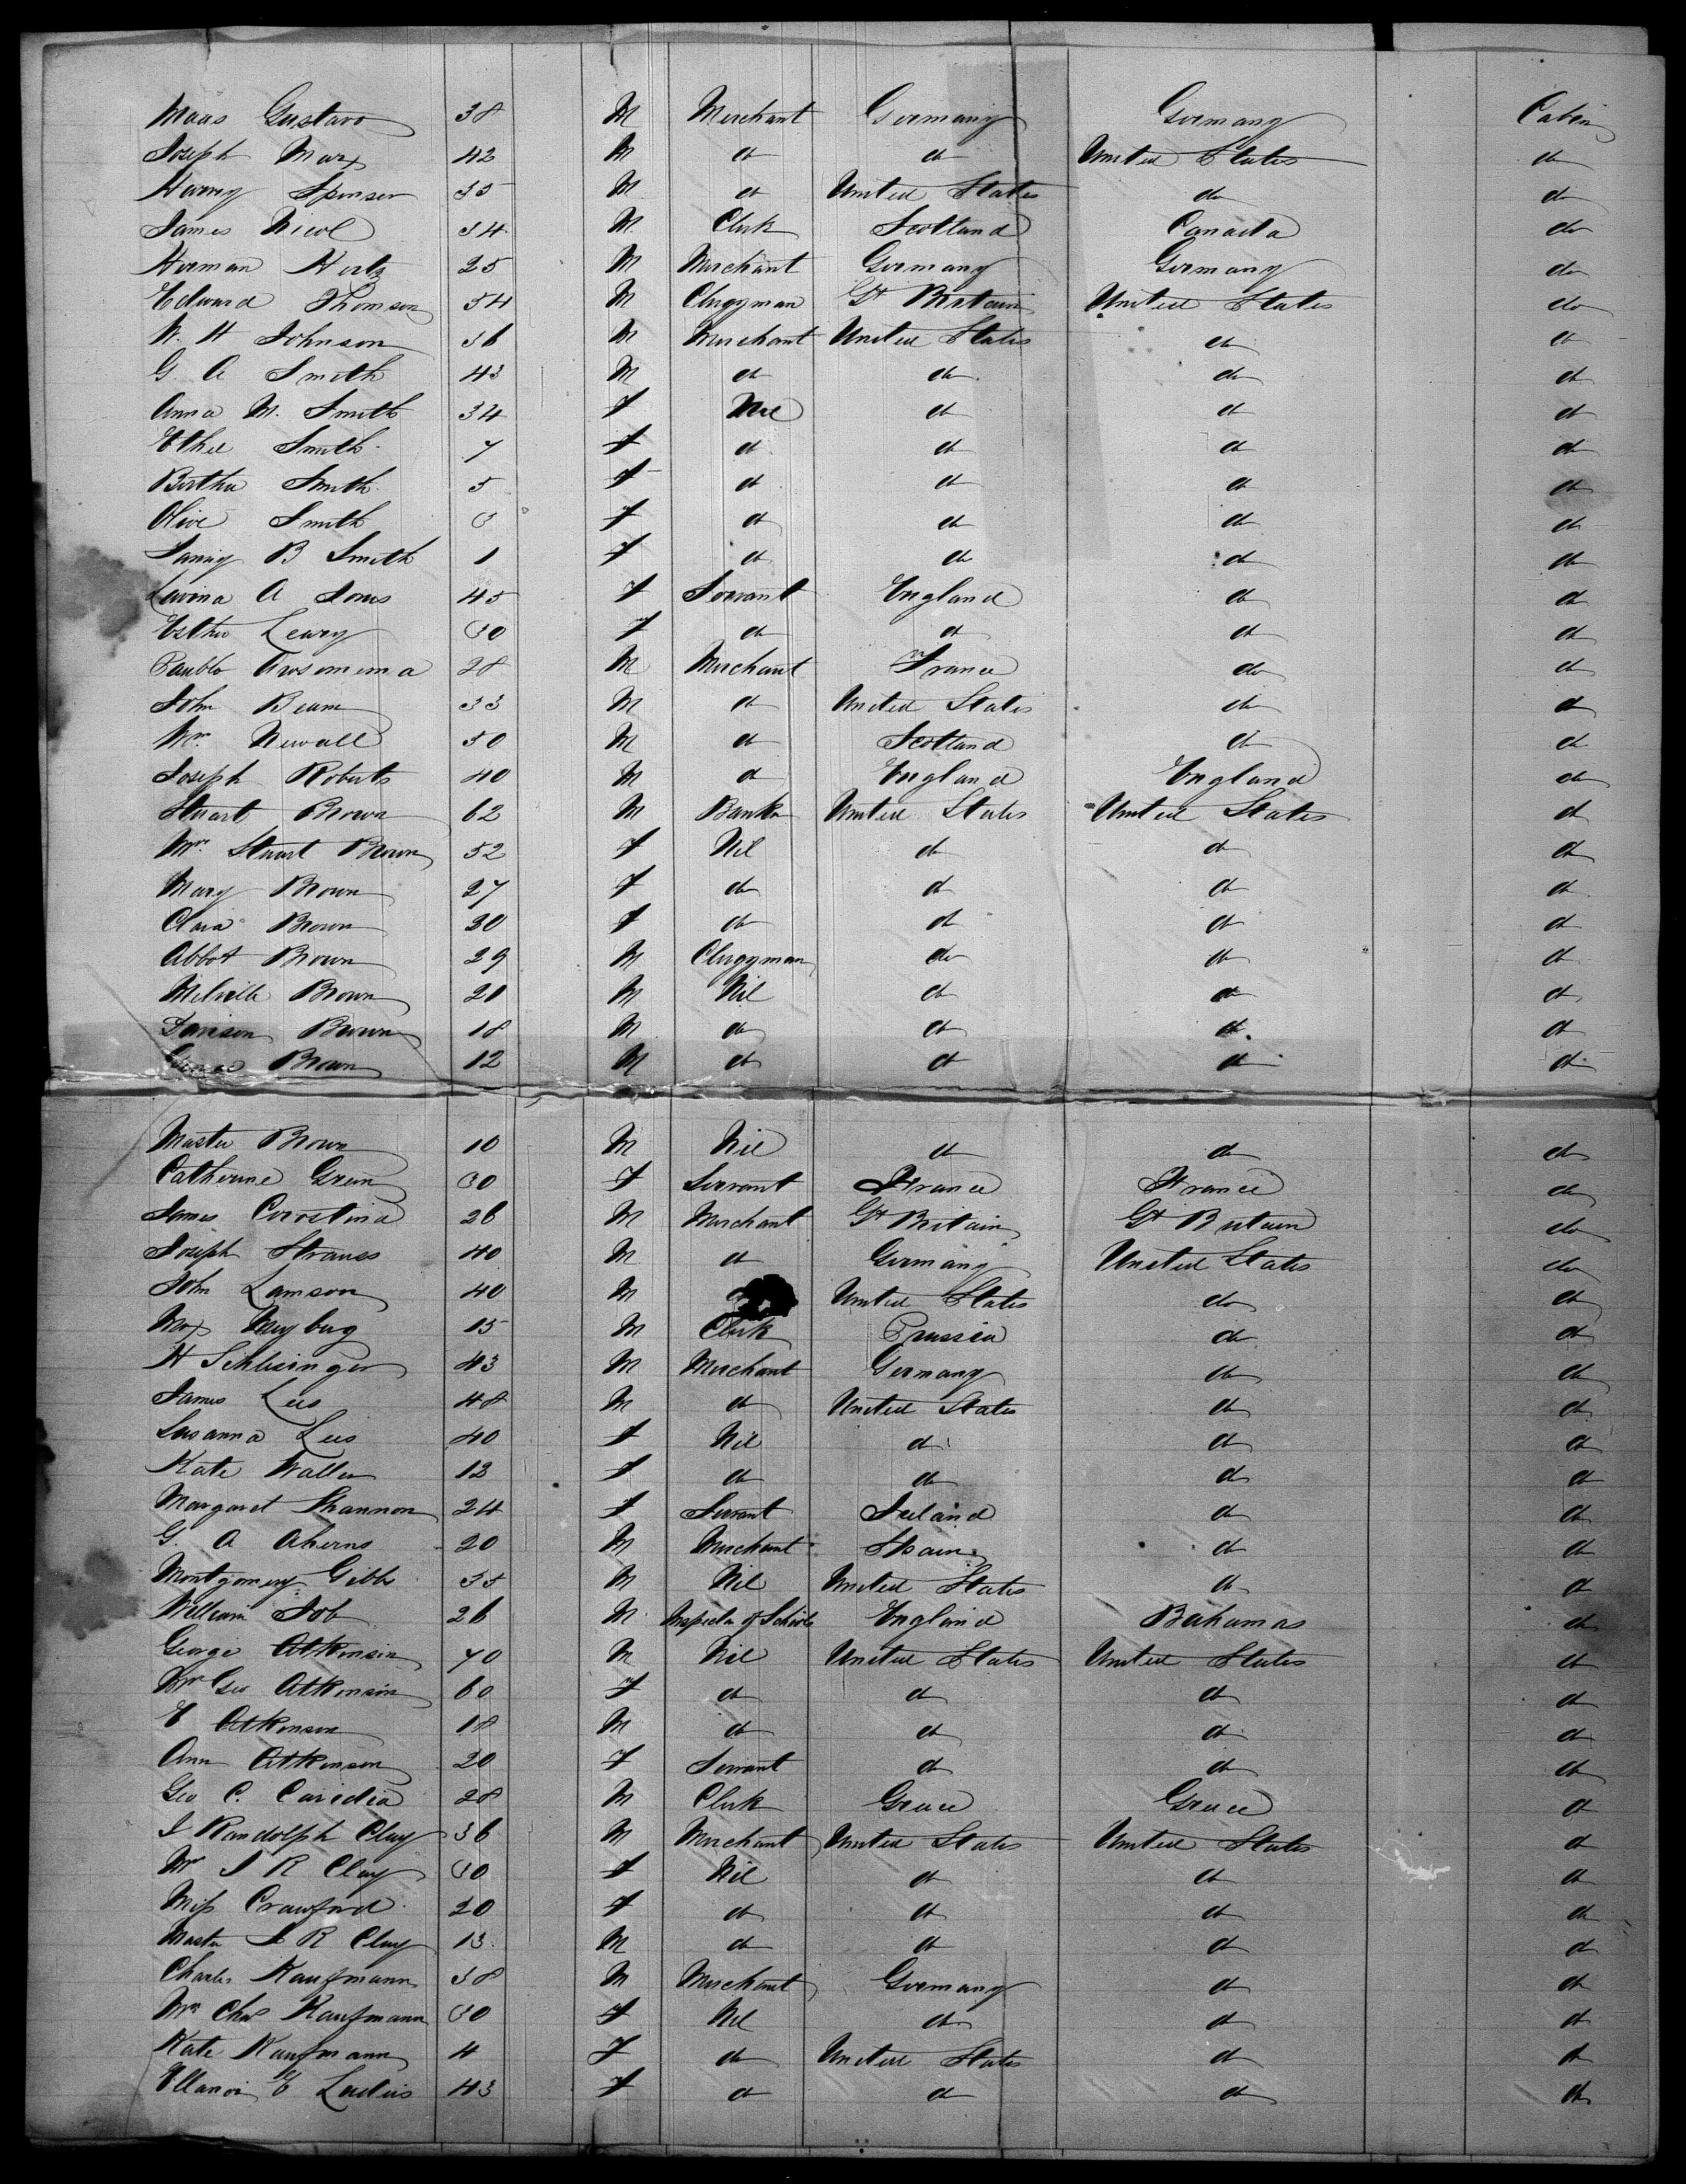 Maas Gustavo 38 M Merchant Germany Germany Cabin
Joseph Marx 42 M do do United States do
Harvey Spenser 35 M do United States do do
James Nicol 34 M Clerk Scotland Canada do
Herman Hertz 25 M Merchant Germany Germany do
Edward Thomson 54 M Clergyman Gt Britain United States do
W. H Johnson 36 M Merchant United States do do
G. A Smith 43 M do do do do
Anna M. Smith 34 f Nil do do do
Ethel Smith 7 f do do do do
Bertha Smith 5 f do do do do
Olive Smith 3 f do do do do
Fanny B Smith 1 f do do do do
Lavina A Jones 45 f Servant England do do
Esther Leary 30 f do do do do
Paublo Arosemena 28 M Merchant France do do
John Beam 33 M do United States do do
Wm. Newall 50 M do Scotland do do
Joseph Roberts 40 M do England England do
Stuart Brown 62 M Banker United States United States do
Mrs. Stuart Brown 52 f Nil do do do
Mary Brown 27 f do do do do
Clara Brown 20 f do do do do
Abbot Brown 29 M Clergyman do do do
Melville Brown 20 M Nil do do do
Davison Brown 18 M do do do do
Brown 12 M do do do do
Master Brown 10 M Nil do do do
Catherine Green 30 f Servant France France do
James 26 M Merchant Gt Britain Gt Britain do
Joseph Strauss 40 M do Germany United States do
John Lamson 40 M United States do do
Max 15 M Clerk Prussia do do
H Schlesinger 43 M Merchant Germany do do
James Lees 48 M do United States do do
Susanna Lees 40 f Nil do do do
Kate Waller 12 f do do do do
Margaret Shannon 24 f Servant Ireland do do
G. A Aherns 20 M Merchant Spain do do
Montgomery Gibbs 35 M Nil United States do do
William Job 26 M Inspector of Schools England Bahamas do
George Atkinson 70 M Nil United States United States do
Mrs Geo Atkinson 60 f do do do do
E Atkinson 18 M do do do do
Ann Atkinson 20 f Servant do do do
Geo C. Caridia 28 M Clerk Greece Greece do
J Randolph Clay 36 M Merchant United States United States do
Mrs J R Clay 30 f Nil do do do
Miss Crawford 20 f do do do do
Master J R Clay 13 M do do do do
Charles Kaufmann 38 M Merchant Germany do do
Mrs Chas Kaufmann 30 f Nil do do do
Kate Kaufmann 4 f do United States do do
E 43 f do do do do